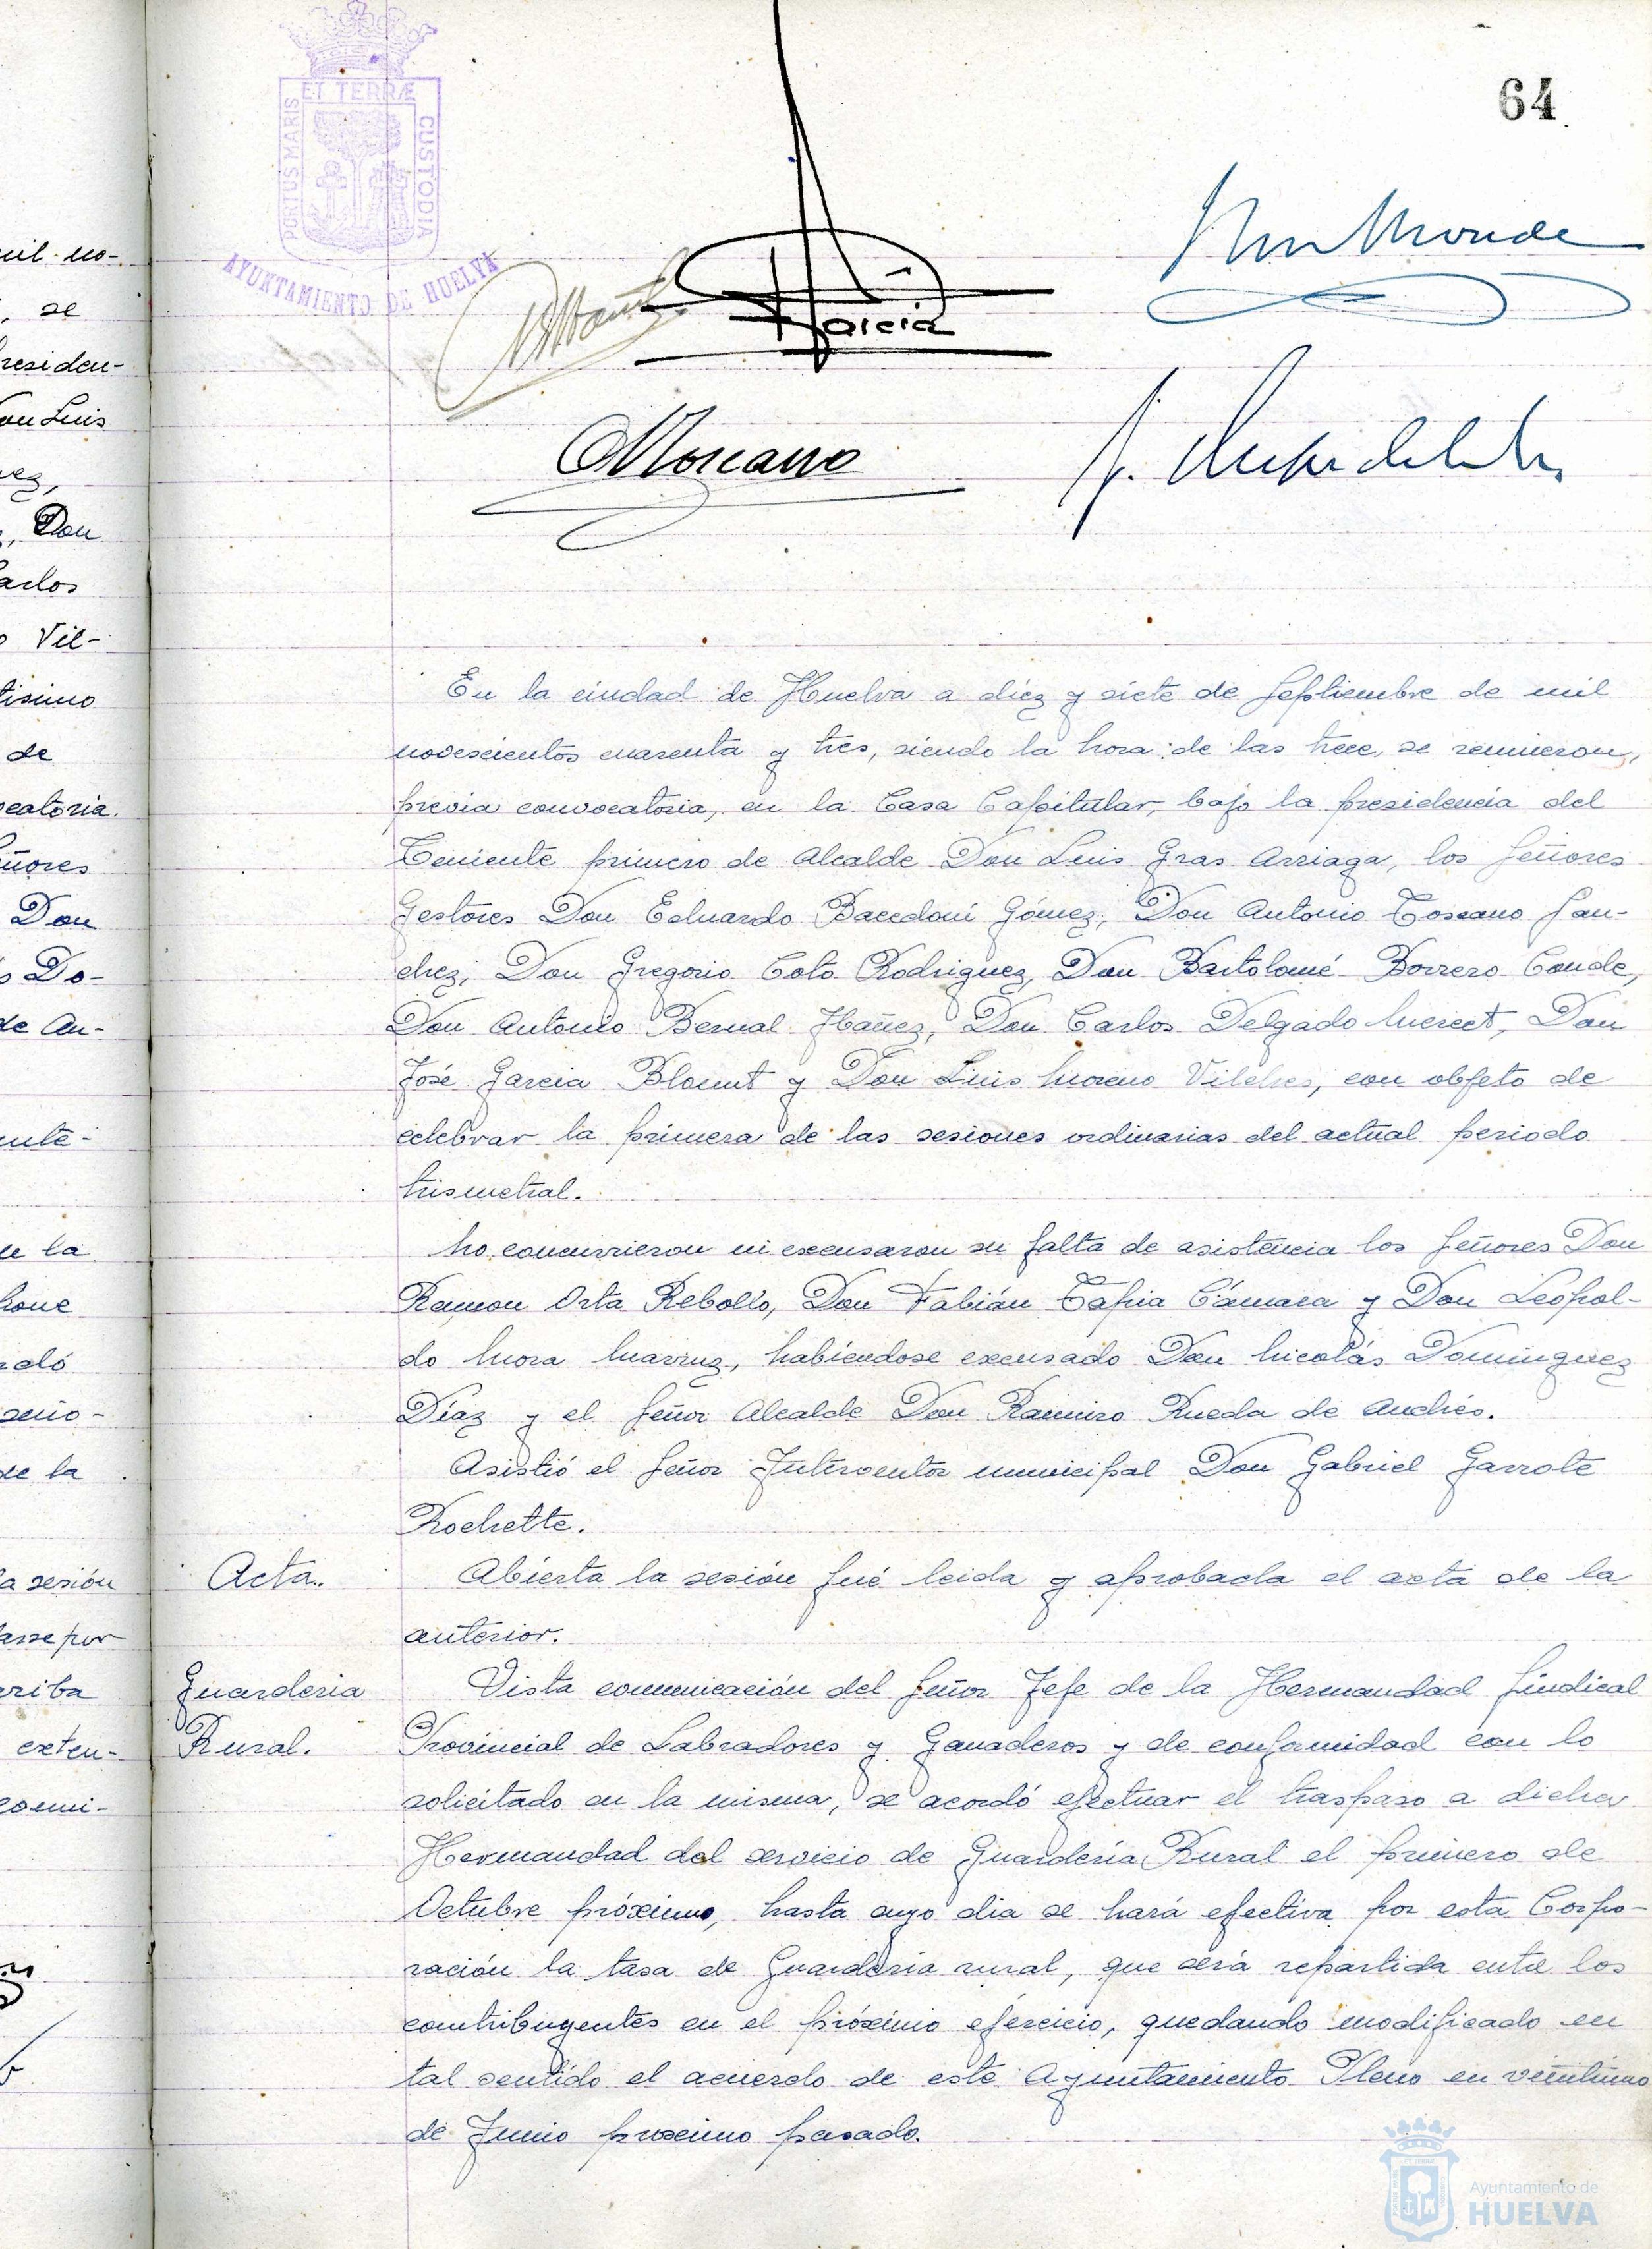 64
ET TERRÆ
PORTUS MARIS
CUSTODIA
AYUNTAMIENTO DE HUELVA
García
En la ciudad de Huelva a diez y siete de Septiembre de mil
novescientos cuarenta y tres, siendo la hora de las trece, se reunieron,
previa convocatoria, en la Casa Capitular, bajo la presidencia del
Teniente primero de Alcalde Don Luis Gras Arriaga, los Señores
Gestores Don Eduardo Baccdoni Gómez, Don Antonio Toscano San-
chez, Don Gregorio Coto Rodriguez, Don Bartolomé Borrero Conde,
Don Antonio Bernal Ibañez, Don Carlos Delgado Don
José Garcia Blount y Don Luis Moreno Vilches, con objeto de
celebrar la primera de las sesiones ordinarias del actual periodo
trismetral.
No concurrieron ni excusaron su falta de asistencia los Señores Don
Ramon Orta Rebollo, Don Fabián Tapia Cámara y Don Leopol-
do Mora habiendose excusado Don Nicolás Dominguez
Díaz y el Señor Alcalde Don Ramiro Rueda de Andrés.
Asistió el Señor Interventor municipal Don Gabriel Garrote
Rochette.
Acta.
Abierta la sesión fué leida y aprobada el acta de la
anterior.
Guarderia
Rural.
Vista comunicación del Señor Jefe de la Hermandad Sindical
Provincial de Labradores y Ganaderos y de conformidad con lo
solicitado en la misma, se acordó efectuar el traspaso a dicha
Hermandad del servicio de Guardería Rural el primero de
Octubre próximo, hasta cuyo dia se hará efectiva por esta Corpo-
ración la tasa de Guarderia rural, que será repartida entre los
contribuyentes en el próximo ejercicio, quedando modificado en
tal sentido el acuerdo de este Ayuntamiento Pleno en veintiuno
de Junio proximo pasado.
Ayuntamiento de
HUELVA